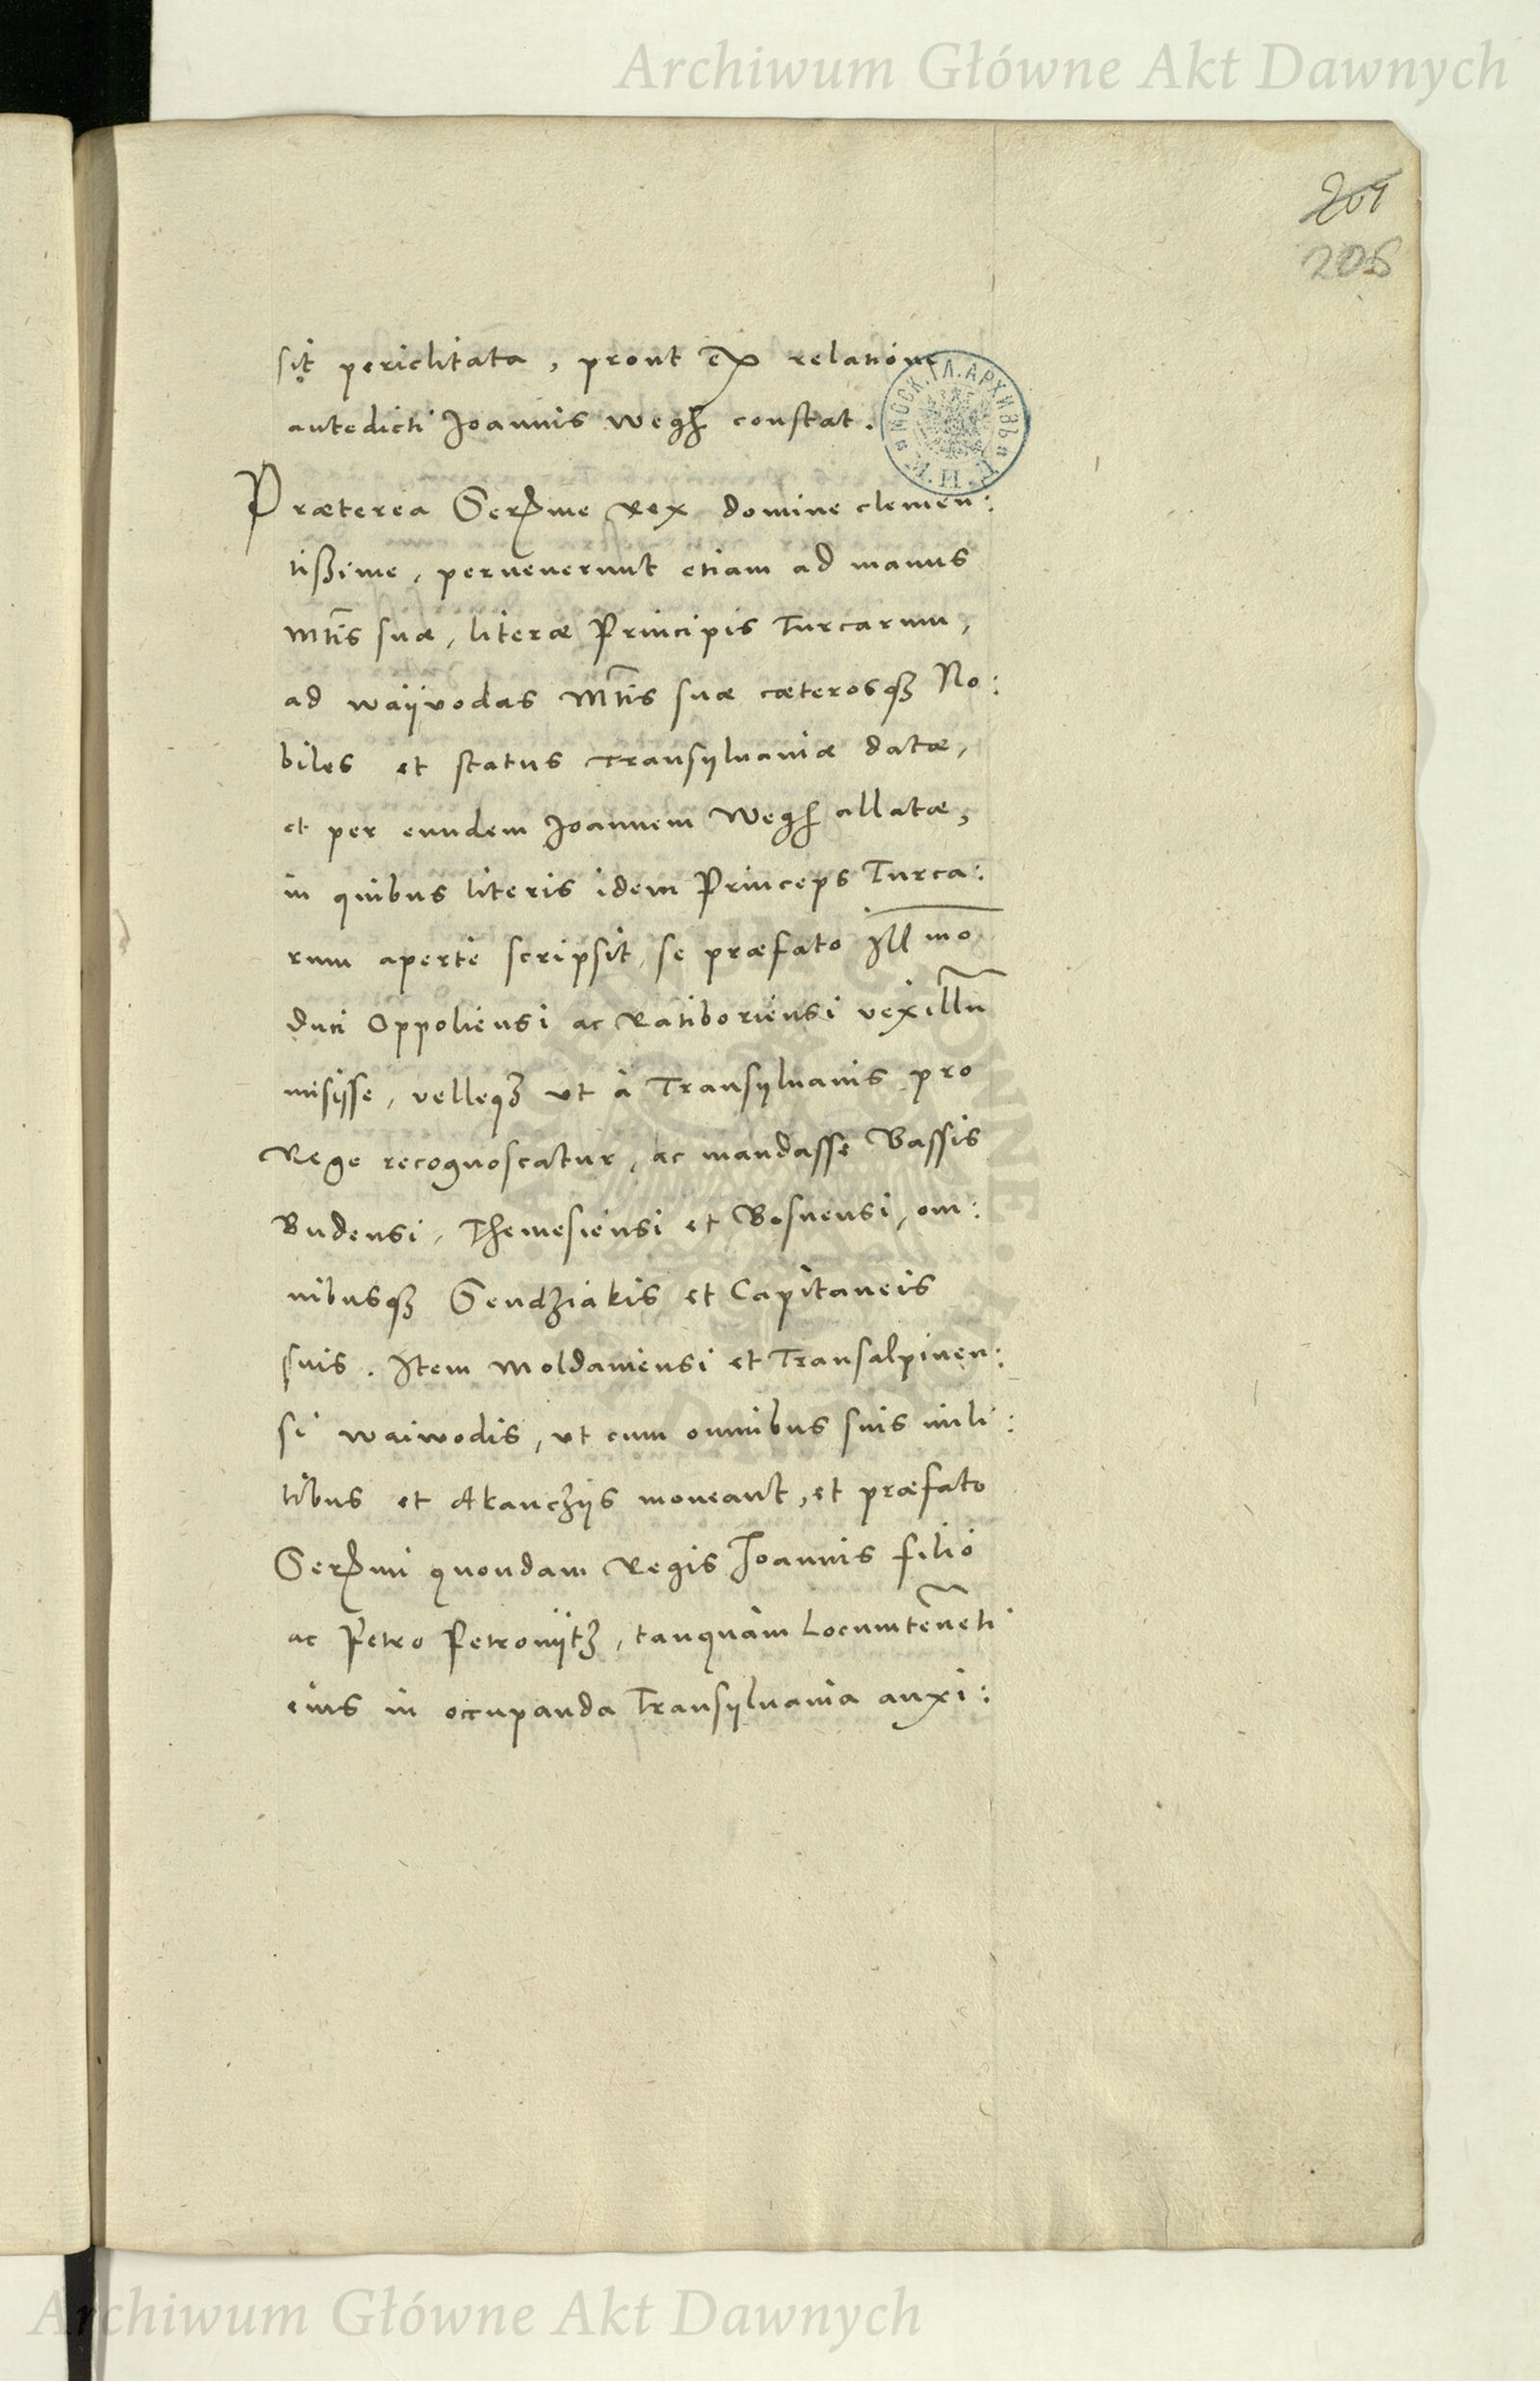 Archiwum Główne Akt Dawnych
201
206
sit periclitata, prout ex relatione
antedicti Joannis Wegh constat.
МОСК. ГЛ. АРХИВЪ
Præterea Serme Rex domine clemen:
tißime, peruenerunt etiam ad manus
Mtis suæ, literæ Principis Turcarum,
ad waijvodas Mtis suæ cæterosq3 No:
biles et status Transijluaniæ datæ,
et per eundem Joannem Wegh allatæ,
in quibus literis idem Princeps Turca:
rum aperte scripsit, se præfato Illmo
duci Oppoliensi ac Ratiboriensi vexillũ
misisse, velleq3 vt à Transijluanis pro
Rege recognoscatur, ac mandasse Bassis
Budensi, Themesiensi et Bosnensi, om:
nibusq3 Sendziakis et Capitaneis
suis. Item Moldauiensi et Transalpinen:
si waiwodis, vt cum omnibus suis mili:
tibus et Akanczijs moueant, et præfato
Sermi quondam Regis Joannis filio
ac Petro Petrovijtz, tanquam Locumteneti
eius in occupanda Transijluania auxi:
Archiwum Główne Akt Dawnych